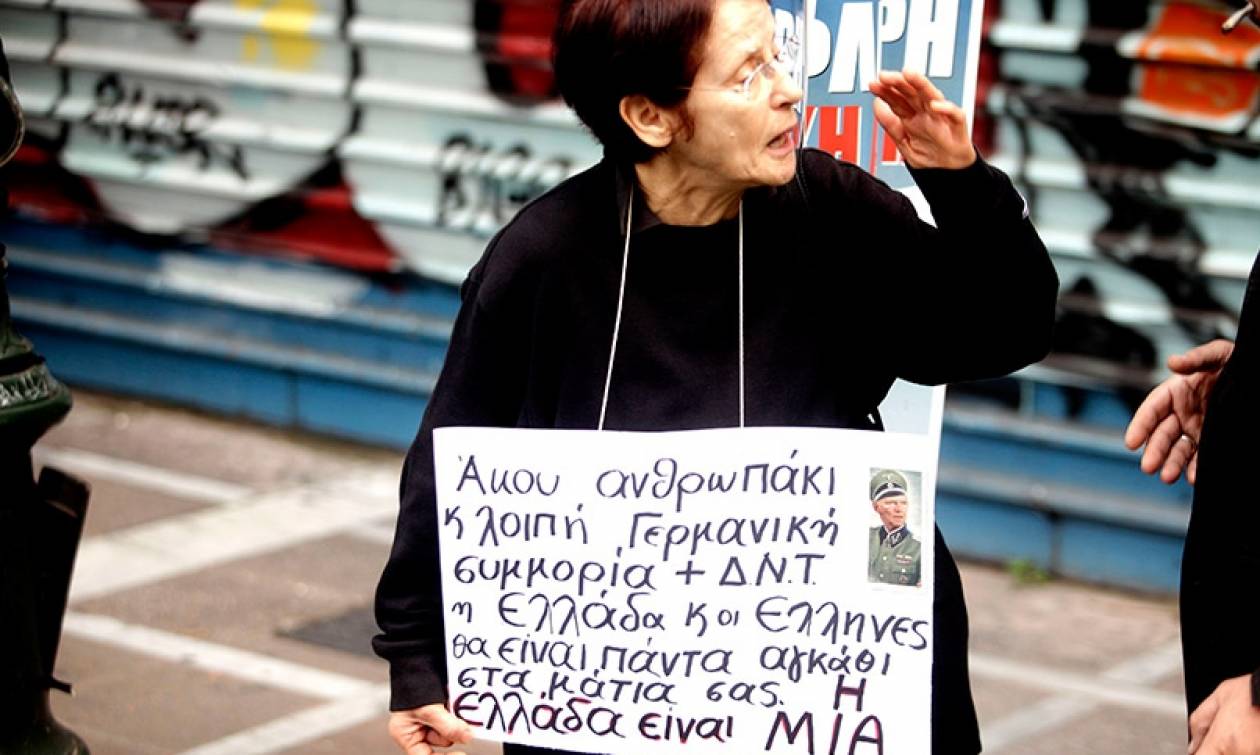 ΦΛΡΗ
ΚΗ
Άκου ανθρωπάκι
κ λοιπή Γερμανική
συμμορία + Δ.Ν.Τ.
η Ελλάδα κ οι Έλληνες
θα είναι πάντα αγκάθι
στα μάτια σας. Η
Ελλάδα είναι ΜΙΑ